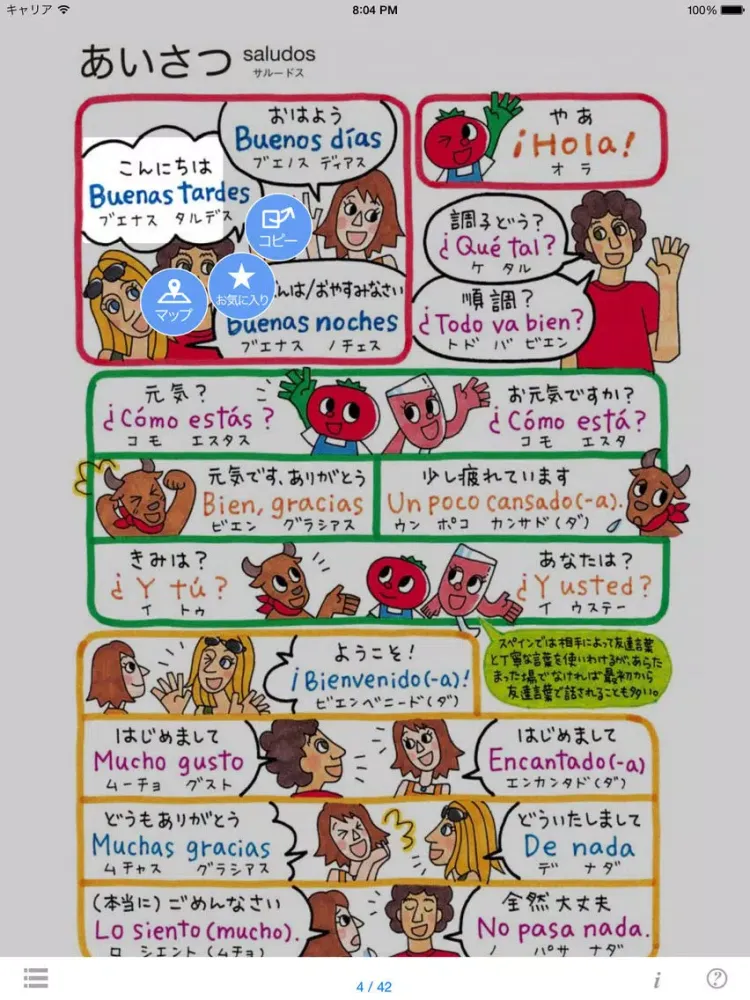 キャリア
8:04 PM
100%
あいさつ
saludos
サルードス
おはよう
Buenos días
ブエノス ディアス
こんにちは
Buenas tardes
ブエナス タルデス
コピー
お気に入り
マップ
んは/おやすみなさい
Buenas noches
ブエナス ノチェス
やあ
¡Hola!
オラ
調子どう?
¿Qué tal?
ケ タル
順調?
¿Todo va bien?
トド バ ビエン
元気?
¿Cómo estás?
コモ エスタス
お元気ですか?
¿Cómo está?
コモ エスタ
元気です、ありがとう
Bien, gracias
ビエン グラシアス
少し疲れています
Un poco cansado(-a).
ウン ポコ カンサド(ダ)
きみは?
¿Y tú?
イ トゥ
あなたは?
¿Y usted?
イ ウステー
スペインでは相手によって友達言葉
と丁寧な言葉を使いわけるが、あらた
まった場でなければ最初から
友達言葉で話されることも多い。
ようこそ!
¡Bienvenido(-a)!
ビエンベニード(ダ)
はじめまして
Mucho gusto
ムーチョ グスト
はじめまして
Encantado(-a)
エンカンタド(ダ)
どうもありがとう
Muchas gracias
ムチャス グラシアス
どういたしまして
De nada
デ ナダ
(本当に)ごめんなさい
Lo siento (mucho).
ロ シエント (ムチョ)
全然大丈夫
No pasa nada.
ノ パサ ナダ
4 / 42
i
?